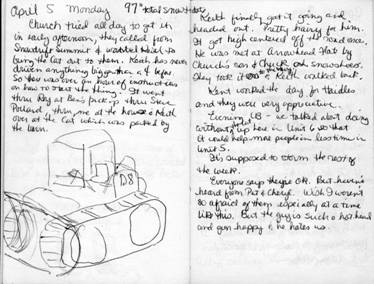 April 5 Monday 97" Total Snow
Church tried all day to get it
in early afternoon, they called from
Snowdrift Summer & wanted Keith to
bring the Cat out to them. Keith has never
driven anything bigger than a
So there was an hour of instructions
on how to start the thing. It went
thru Ray at Ben's pick up thru Steve
Pollard thru me at the house & Keith
over at the Cat which was parked by
the barn.
D8
Keith finally got it going and
headed out. Pretty hairy for him.
It got high centered off road once.
He was met at Arrowhead flat by
Church's son & Chuck on snowshoes.
They took it & Keith walked back.
Kent worked the day for Haidles
and they were very appreciative.
Evening CB - we talked about doing
without up here in Unit 6 so that
it could help more people in less time in
Unit 5.
It's supposed to storm the rest of
the week.
Everyone says they're OK. But haven't
heard from Pat & Cheryl. Wish I weren't
so afraid of them especially at a time
like this. But the guy is such a hot head
and gun happy & he hates us.